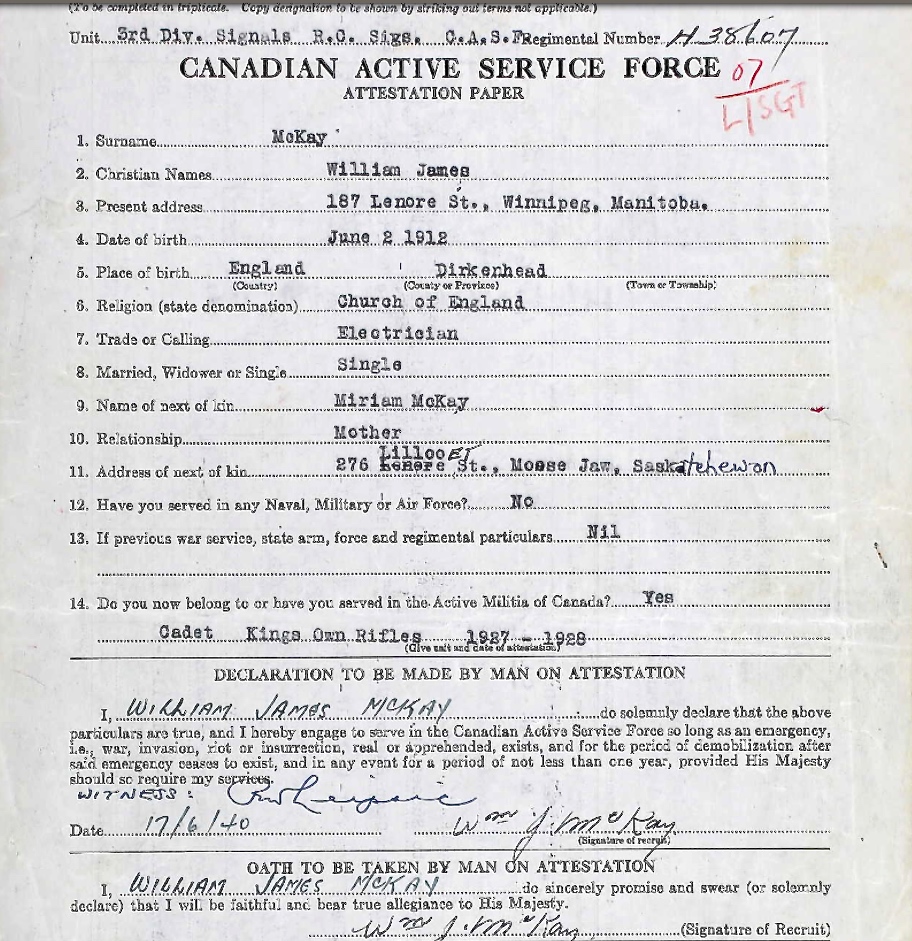 (To be completed in triplicate. Copy designation to be shown by striking out terms not applicable.)
Unit 3rd Div. Signals R.C. Sigs. C.A.S.F Regimental Number H 38607
CANADIAN ACTIVE SERVICE FORCE
07
ATTESTATION PAPER
L/SGT
1. Surname McKay
2. Christian Names William James
3. Present address 187 Lenore St., Winnipeg, Manitoba.
4. Date of birth June 2 1912
5. Place of birth England Dirkenhead
(Country) (County or Province) (Town or Township)
6. Religion (state denomination) Church of England
7. Trade or Calling Electrician
8. Married, Widower or Single Single
9. Name of next of kin Miriam McKay
10. Relationship Mother
Lillooet
11. Address of next of kin 276 Lenore St., Moose Jaw, Saskatchewan
12. Have you served in any Naval, Military or Air Force? No
13. If previous war service, state arm, force and regimental particulars Nil
14. Do you now belong to or have you served in the Active Militia of Canada? Yes
Cadet Kings Own Rifles 1927 - 1928
(Give unit and date of attestation)
DECLARATION TO BE MADE BY MAN ON ATTESTATION
I, WILLIAM JAMES MCKAY do solemnly declare that the above
particulars are true, and I hereby engage to serve in the Canadian Active Service Force so long as an emergency,
i.e., war, invasion, riot or insurrection, real or apprehended, exists, and for the period of demobilization after
said emergency ceases to exist, and in any event for a period of not less than one year, provided His Majesty
should so require my services.
WITNESS:
Date 17/6/40 Wm J. McKay
(Signature of recruit)
OATH TO BE TAKEN BY MAN ON ATTESTATION
I, WILLIAM JAMES MCKAY do sincerely promise and swear (or solemnly
declare) that I will be faithful and bear true allegiance to His Majesty.
Wm J. McKay (Signature of Recruit)